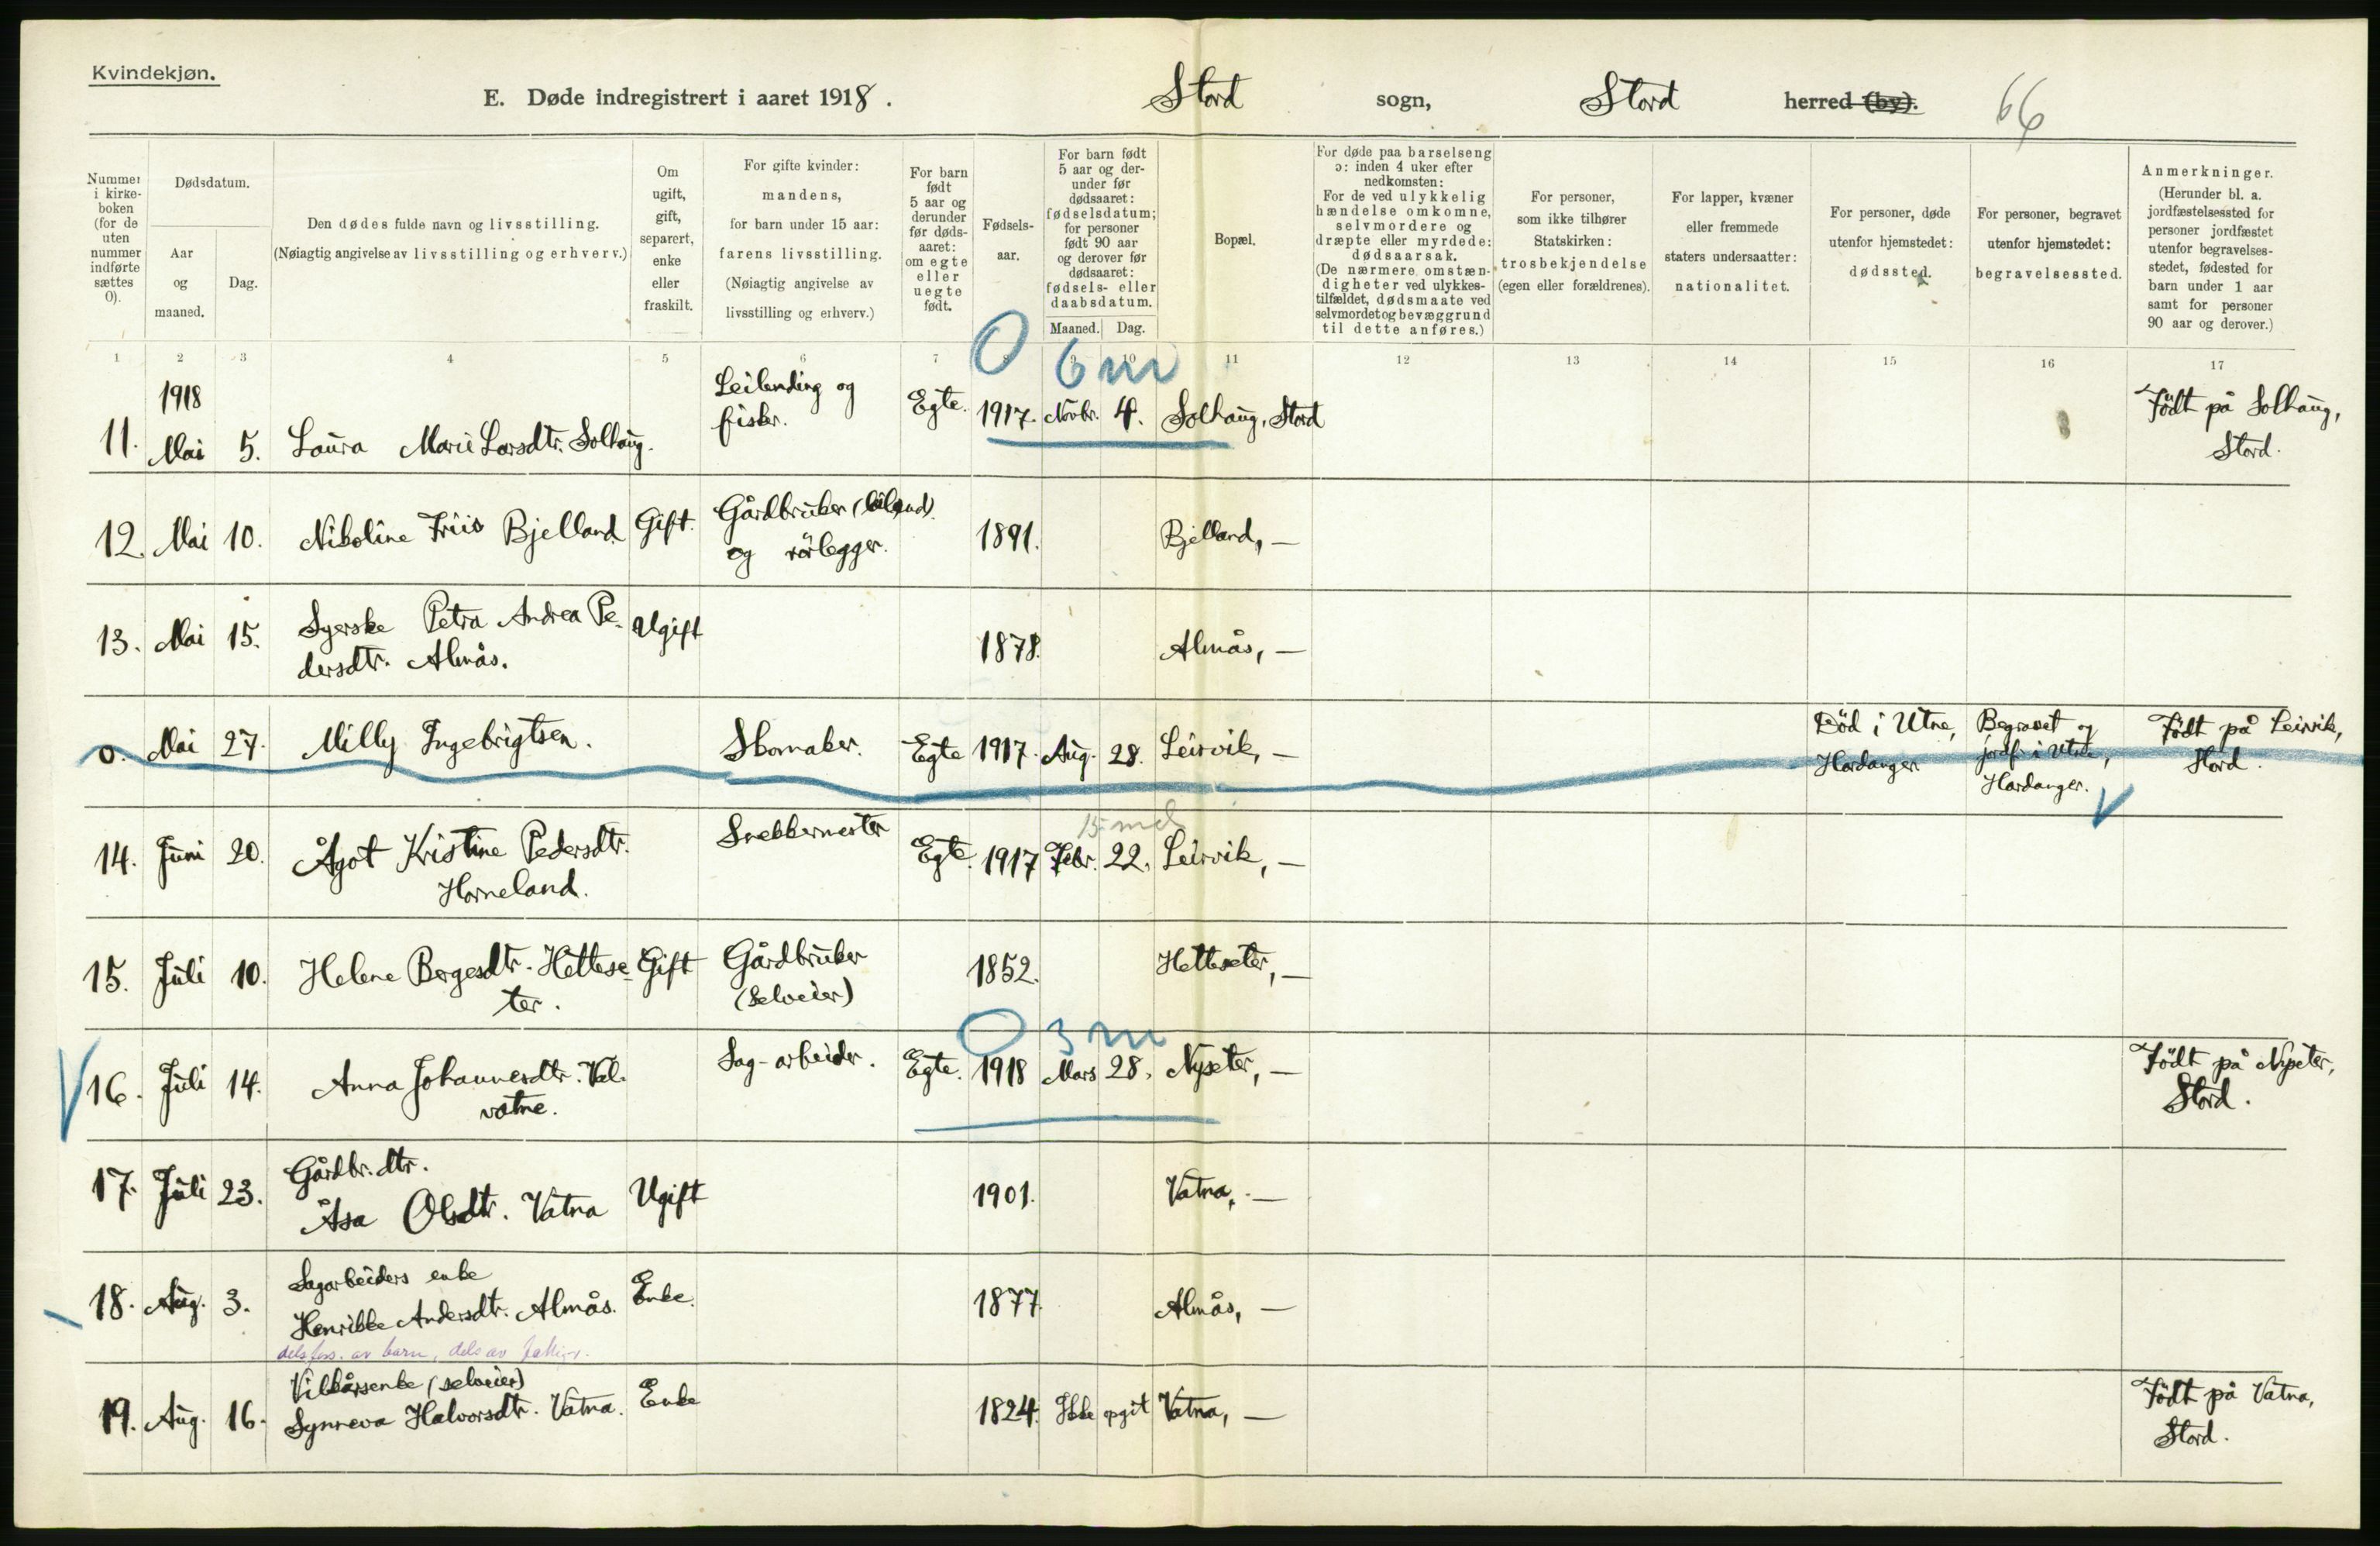 Kvindekjøn.
E. Døde indregistrert i aaret 1918.
Stord sogn, Stord herred (by). 66
Nummer i kirkeboken (for de uten nummer indførte sættes 0).
Dødsdatum.
Aar og maaned.
Dag.
Den dødes fulde navn og livsstilling.
(Nøiagtig angivelse av livsstilling og erhverv.)
Om ugift, gift, separert, enke eller fraskilt.
For gifte kvinder: mandens, for barn under 15 aar: farens livsstilling.
(Nøiagtig angivelse av livsstilling og erhverv.)
For barn født 5 aar og derunder før dødsaaret: om egte eller uegte født.
Fødselsaar.
For barn født 5 aar og derunder før dødsaaret: fødselsdatum; for personer født 90 aar og derover før dødsaaret: fødsels- eller daabsdatum.
Maaned. Dag.
Bopæl.
For døde paa barselseng ɔ: inden 4 uker efter nedkomsten: For de ved ulykkelig hændelse omkomne, selvmordere og dræpte eller myrdede: dødsaarsak.
(De nærmere omstændigheter ved ulykkestilfældet, dødsmaate ved selvmordet og bevæggrund til dette anføres.)
For personer, som ikke tilhører Statskirken: trosbekjendelse (egen eller forældrenes).
For lapper, kvæner eller fremmede staters undersaatter: nationalitet.
For personer, døde utenfor hjemstedet: dødssted.
For personer, begravet utenfor hjemstedet: begravelsessted.
Anmerkninger.
(Herunder bl. a. jordfæstelsessted for personer jordfæstet utenfor begravelsesstedet, fødested for barn under 1 aar samt for personer 90 aar og derover.)
1 2 3 4 5 6 7 8 9 10 11 12 13 14 15 16 17
0 6 m
1918
11. Mai 5. Laura Marie Larsdtr. Solhaug. Leilending og fisker. Egte. 1917. Novbr. 4. Solhaug, Stord Født på Solhaug, Stord.
12. Mai 10. Nikoline Friis Bjelland Gift. Gårdbruker (leilend). og rörlegger. 1891. Bjelland, —
13. Mai 15. Syerske Petra Andrea Pedersdtr. Almås. Ugift 1878. Almås, —
0. Mai 27. Milly Ingebrigtsen. Skomaker. Egte 1917. Aug. 28. Leirvik, — Död i Utne, Hardanger Begravet og jordf. i Utne, Hardanger. Födt på Leirvik, Stord.
15 md
14. Juni 20. Ågot Kristine Pedersdtr. Horneland. Snekkermester Egte. 1917 Febr. 22. Leirvik, —
15. Juli 10. Helene Borgesdtr. Hetteseter. Gift Gårdbruker (selveier) 1852. Hetteseter, —
0 3 m
16. Juli 14. Anna Johannesdtr. Valvatne. Sag-arbeider. Egte. 1918 Mars 28. Nyseter, — Födt på Nyseter, Stord.
17. Juli 23. Gårdbr. dtr. Åsa Olsdtr. Vatna Ugift 1901. Vatna, —
18. Aug. 3. Sagarbeiders enke Henrikke Andersdtr. Almås. Enke. 1877. Almås, —
dels fors. av barn, dels av
19. Aug. 16. Vilkårsenke (selveier) Synneva Halvorsdtr. Vatna. Enke 1824. Ikke opgit Vatna, — Födt på Vatna, Stord.